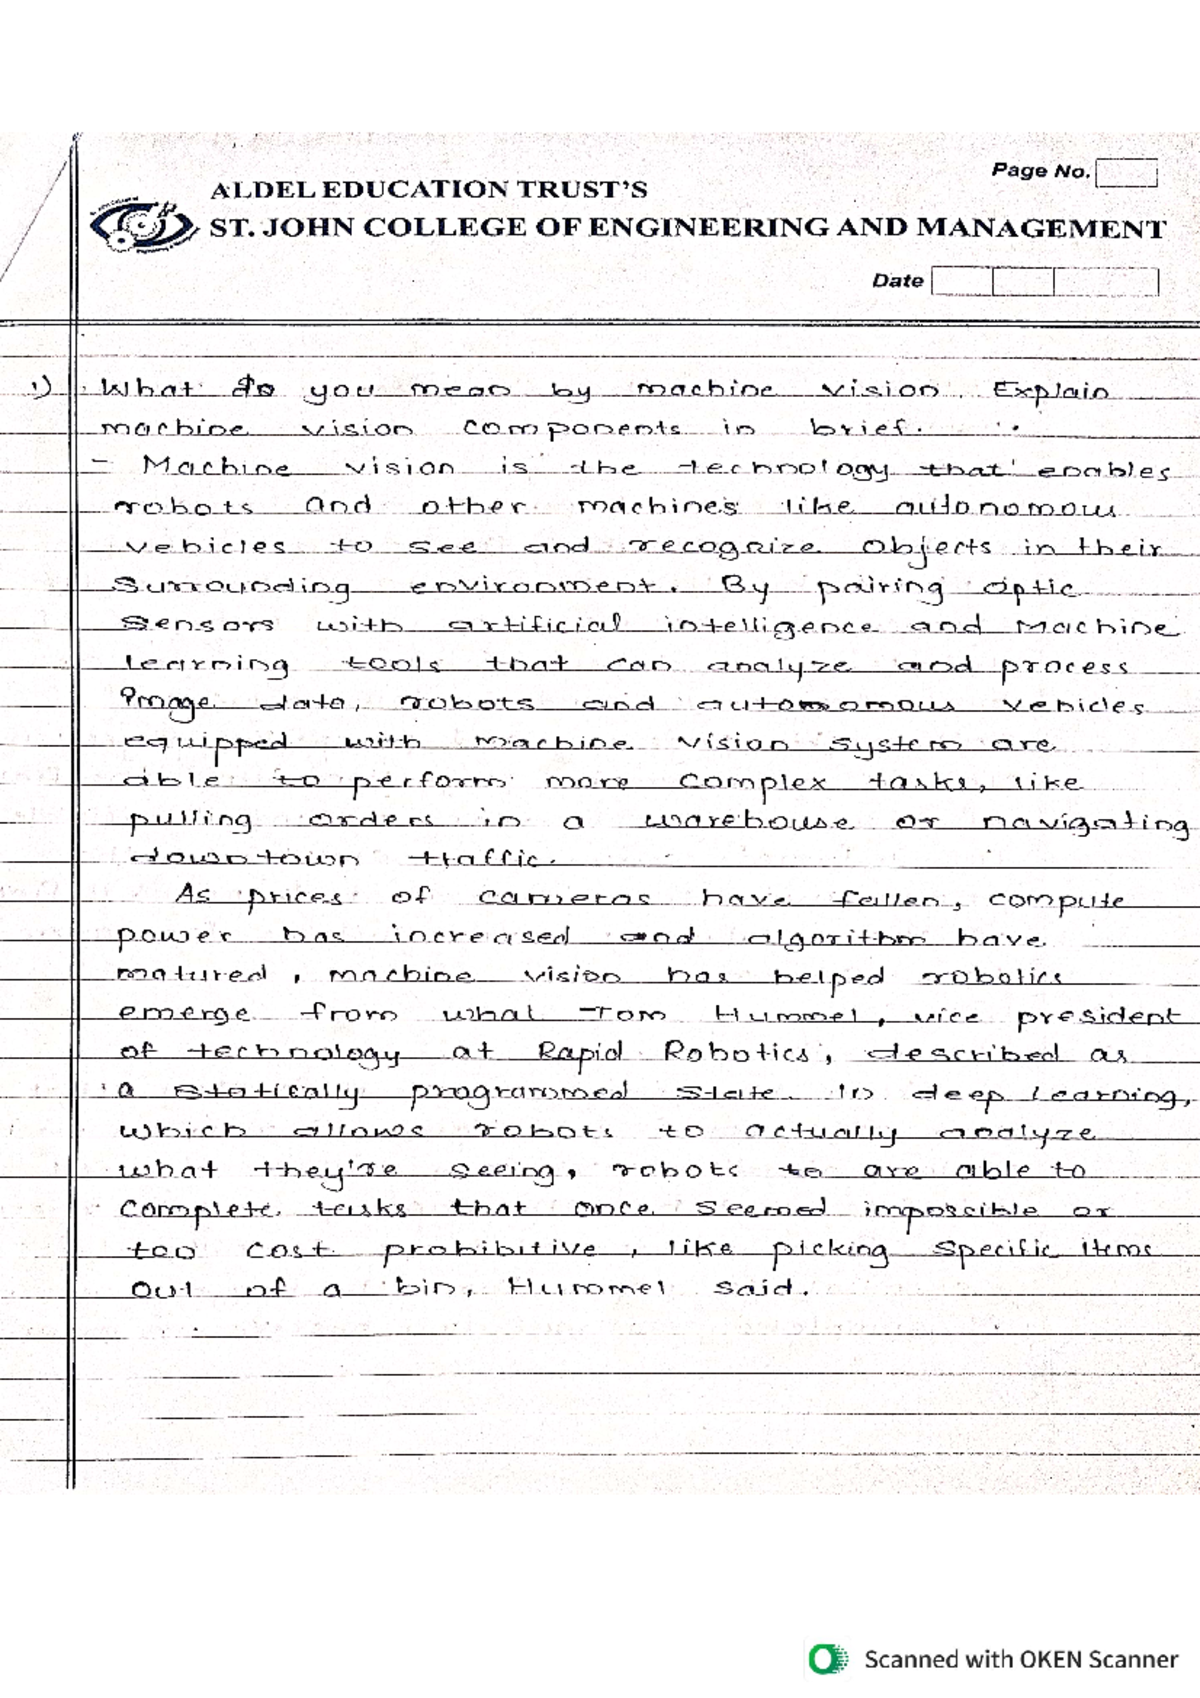 Page No.
ALDEL EDUCATION TRUST'S
ST. JOHN COLLEGE OF ENGINEERING AND MANAGEMENT
Date
1) What do you mean by machine vision. Explain
machine vision components in brief.
- Machine vision is the technology that enables
robots and other machines like autonomous
vehicles to see and recognize objects in their
surrounding environment. By pairing optic
sensors with artificial intelligence and machine
learning tools that can analyze and process
image data, robots and autonomous vehicles
equipped with machine vision system are
able to perform more complex tasks, like
pulling orders in a warehouse or navigating
downtown traffic.
As prices of cameras have fallen, compute
power has increased and algorithm have
matured, machine vision has helped robotics
emerge from what Tom Hummel, vice president
of technology at Rapid Robotics, described as
a statically programmed state. In deep learning,
which allows robots to actually analyze
what they're seeing, robots to are able to
complete tasks that once seemed impossible or
too cost prohibitive, like picking specific items
out of a bin, Hummel said.
Scanned with OKEN Scanner